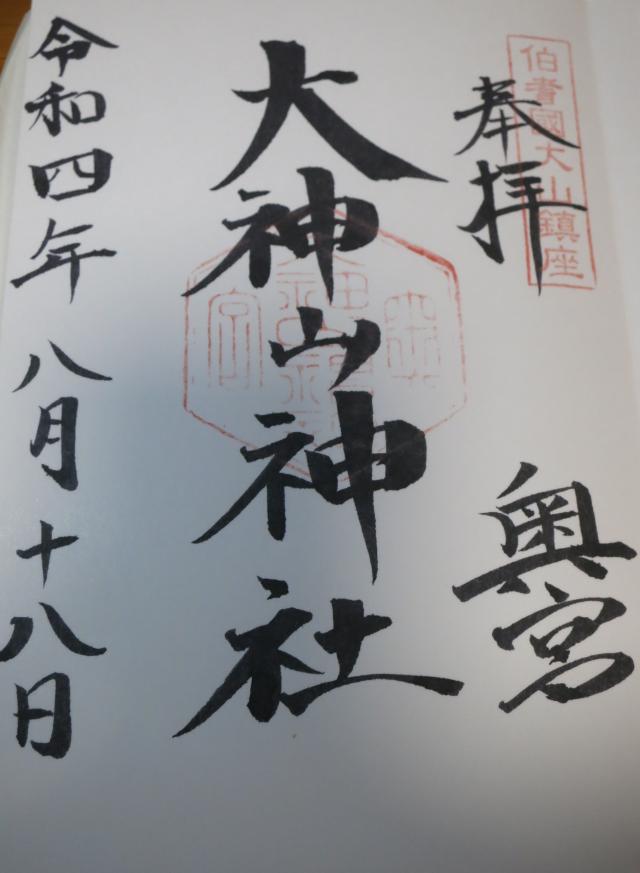 伯耆國大山鎮座
奉拝
奥宮
大神山神社
令和四年 八月十八日